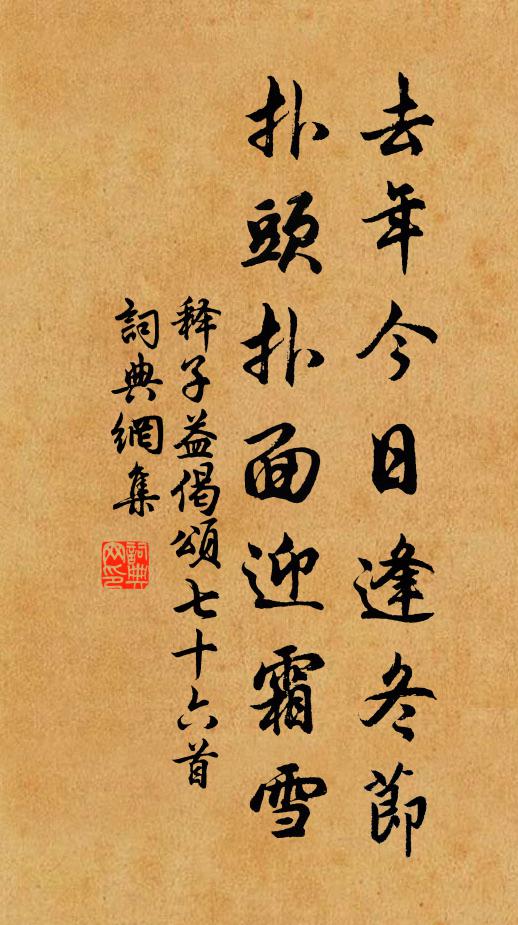 去年今日逢冬節
扑頭扑面迎霜雪
释子益偈頌七十六首
詞典網集
詞典
网印